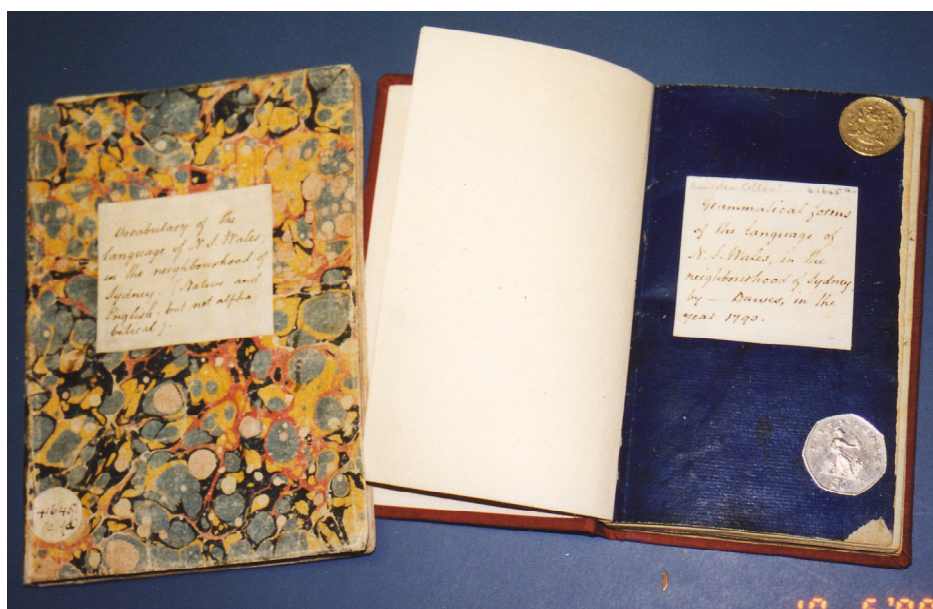 Vocabulary of the
language of N. S. Wales,
in the neighbourhood of
Sydney. (Native and
English, but not alpha
betical).
41645
(c)(d)
Marsden Collec
41645
Grammatical forms
of the language of
N. S. Wales, in the
neighbourhood of Sydney
by — Dawes, in the
year 1790.